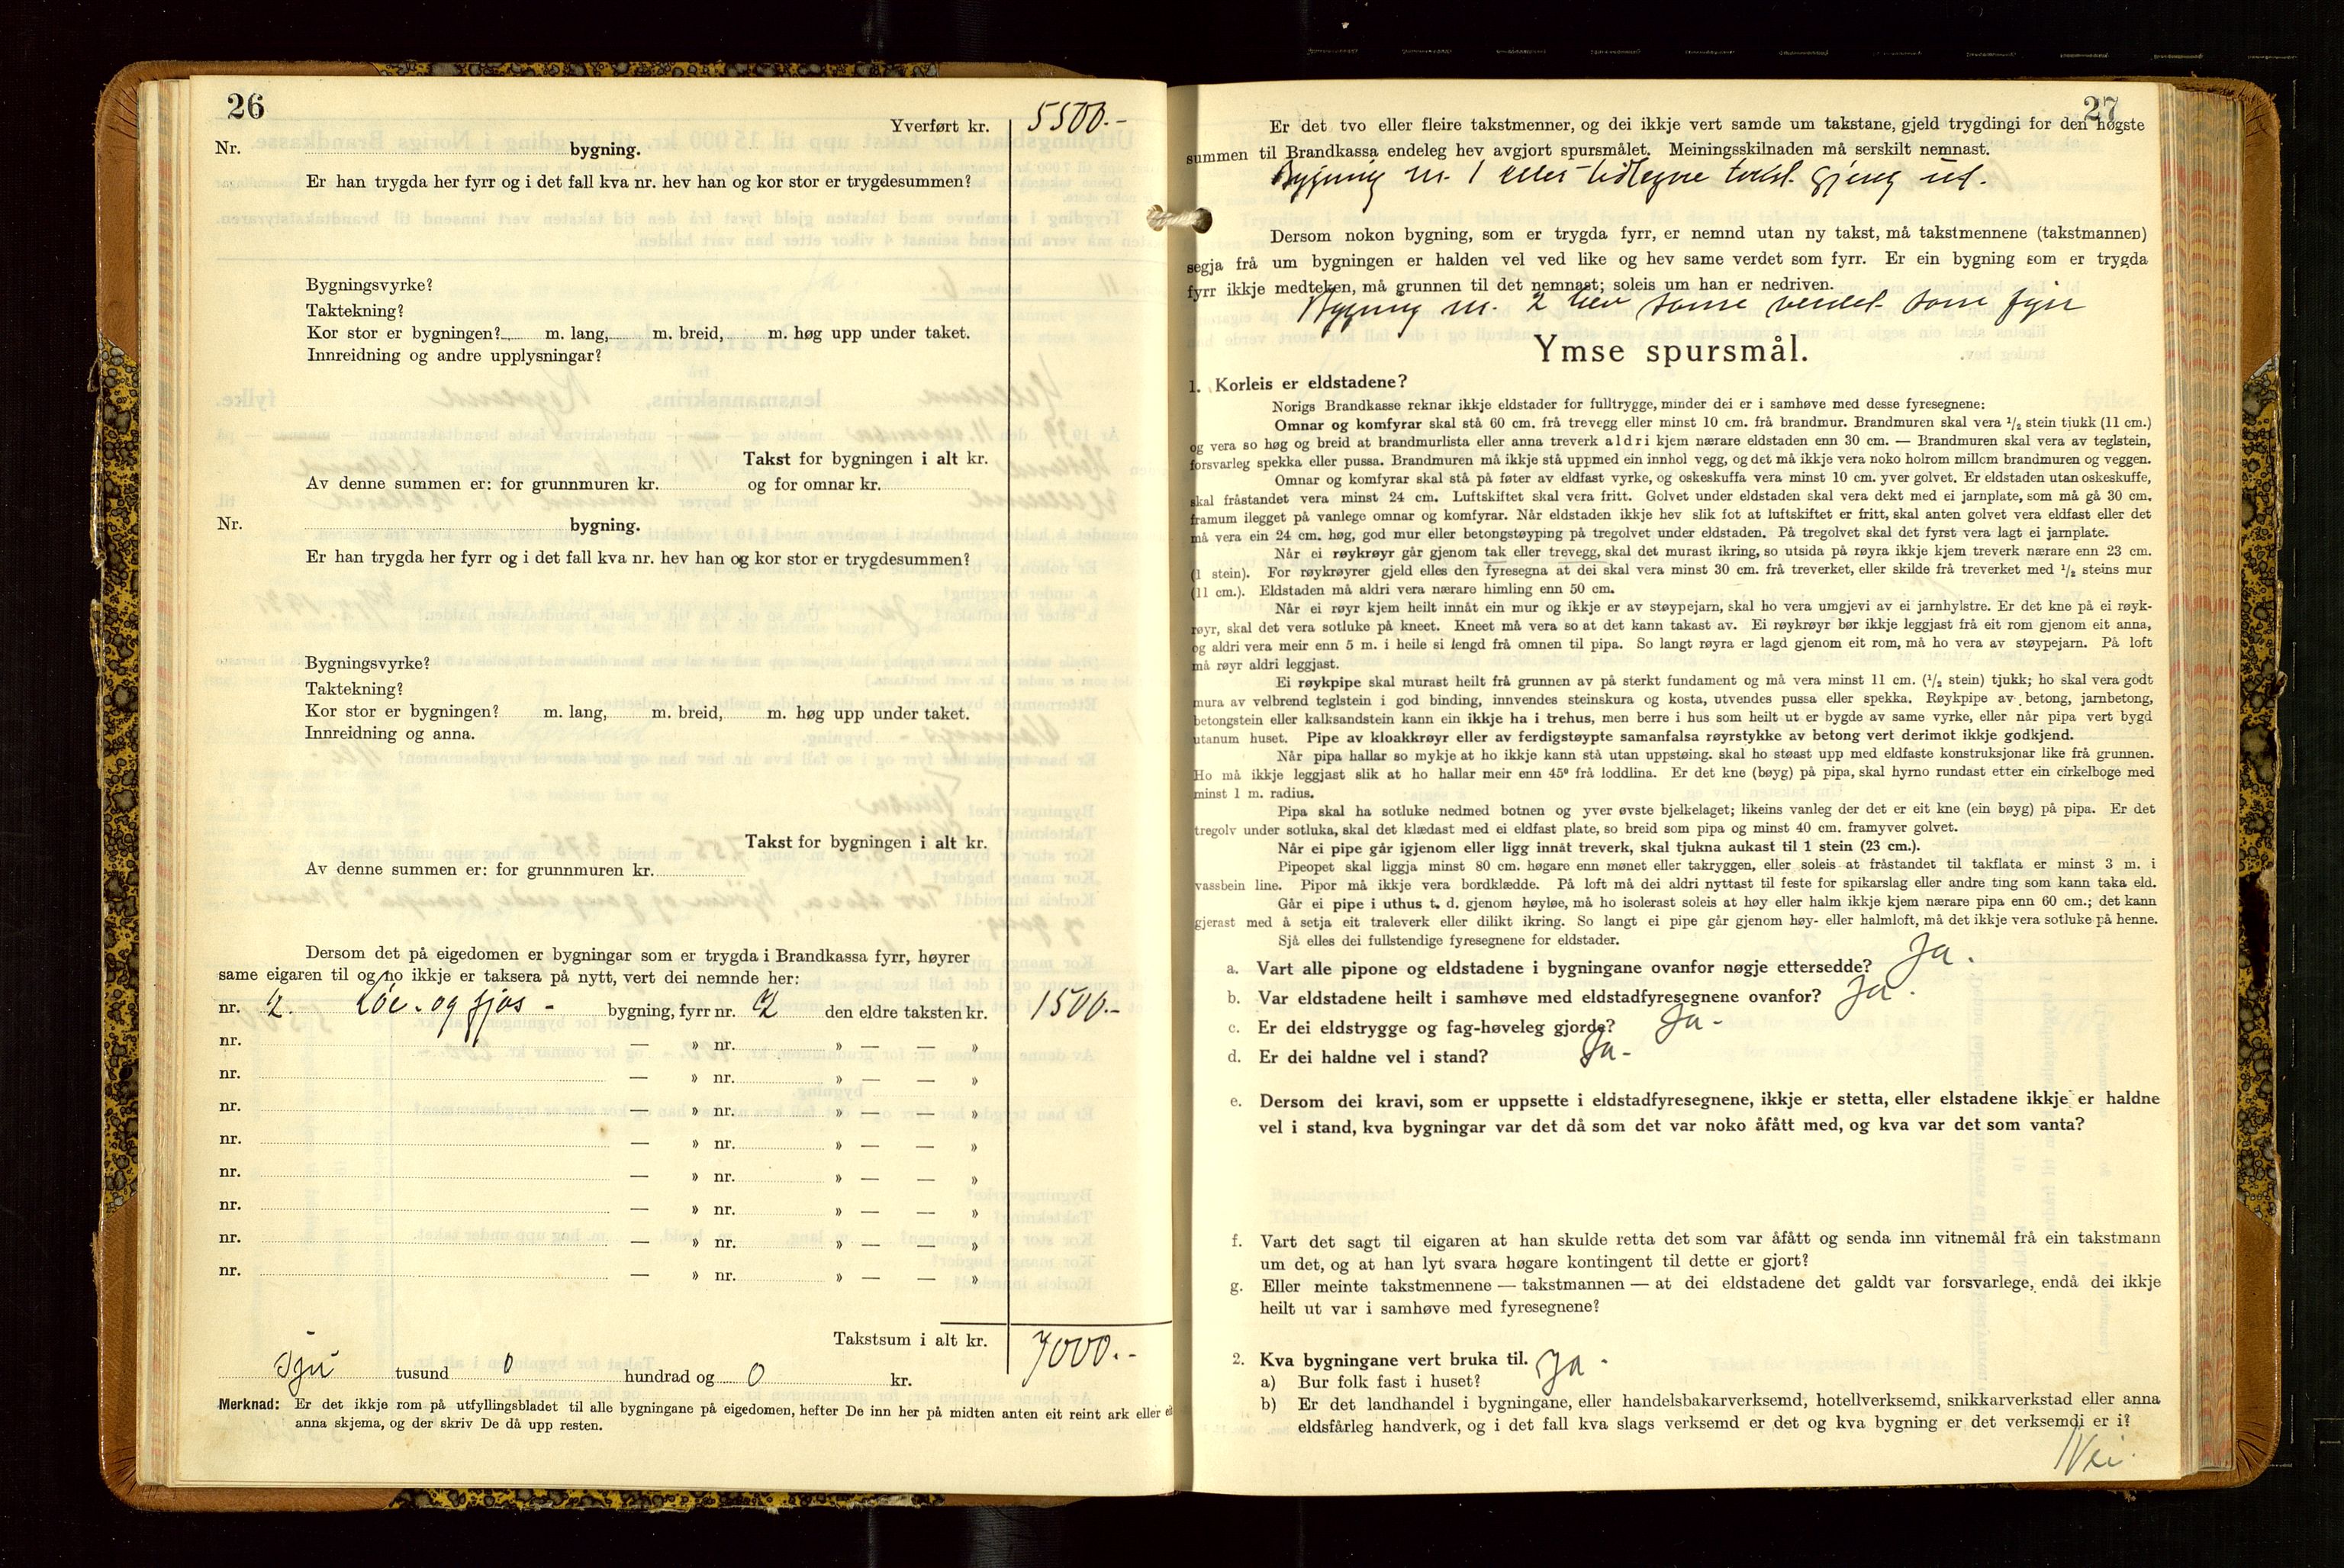 26
Yverført kr. 5500.-
Nr. bygning.
Er han trygda her fyrr og i det fall kva nr. hev han og kor stor er trygdesummen?
Bygningsvyrke?
Taktekning?
Kor stor er bygningen? m. lang, m. breid, m. høg upp under taket.
Innreidning og andre upplysningar?
Takst for bygningen i alt kr.
Av denne summen er: for grunnmuren kr. og for omnar kr.
Nr. bygning.
Er han trygda her fyrr og i det fall kva nr. hev han og kor stor er trygdesummen?
Bygningsvyrke?
Taktekning?
Kor stor er bygningen? m. lang, m. breid, m. høg upp under taket.
Innreidning og anna.
Takst for bygningen i alt kr.
Av denne summen er: for grunnmuren kr.
Dersom det på eigedomen er bygningar som er trygda i Brandkassa fyrr, høyrer
same eigaren til og no ikkje er taksera på nytt, vert dei nemnde her:
nr. 2. Löe- og fjös - bygning, fyrr nr. 2 den eldre taksten kr. 1500.-
nr. — » nr. » — — »
nr. — » nr. » — — »
nr. — » nr. » — — »
nr. — » nr. » — — »
nr. — » nr. » — — »
nr. — » nr. » — — »
nr. — » nr. » — — »
nr. — » nr. » — — »
Takstsum i alt kr. 7000.-
Sju tusund 0 hundrad og 0 kr.
Merknad: Er det ikkje rom på utfyllingsbladet til alle bygningane på eigedomen, hefter De inn her på midten anten eit reint ark eller
anna skjema, og der skriv De då upp resten.
27
Er det tvo eller fleire takstmenner, og dei ikkje vert samde um takstane, gjeld trygdingi for den høgste
summen til Brandkassa endeleg hev avgjort spursmålet. Meiningsskilnaden må serskilt nemnast.
Bygning nr. 1 etter tidlegare takst gjeng ut.
Dersom nokon bygning, som er trygda fyrr, er nemnd utan ny takst, må takstmennene (takstmannen)
segja frå um bygningen er halden vel ved like og hev same verdet som fyrr. Er ein bygning som er trygda
fyrr ikkje medteken, må grunnen til det nemnast; soleis um han er nedriven.
Bygning nr. 2 hev same verdet som fyrr
Ymse spursmål.
1. Korleis er eldstadene?
Norigs Brandkasse reknar ikkje eldstader for fulltrygge, minder dei er i samhøve med desse fyresegnene:
Omnar og komfyrar skal stå 60 cm. frå trevegg eller minst 10 cm. frå brandmur. Brandmuren skal vera 1/2 stein tjukk (11 cm.)
og vera so høg og breid at brandmurlista eller anna treverk aldri kjem nærare eldstaden enn 30 cm. — Brandmuren skal vera av teglstein,
forsvarleg spekka eller pussa. Brandmuren må ikkje stå uppmed ein innhol vegg, og det må ikkje vera noko holrom millom brandmuren og veggen.
Omnar og komfyrar skal stå på føter av eldfast vyrke, og oskeskuffa vera minst 10 cm. yver golvet. Er eldstaden utan oskeskuffe,
skal fråstandet vera minst 24 cm. Luftskiftet skal vera fritt. Golvet under eldstaden skal vera dekt med ei jarnplate, som må gå 30 cm.
framum ilegget på vanlege omnar og komfyrar. Når eldstaden ikkje hev slik fot at luftskiftet er fritt, skal anten golvet vera eldfast eller det
må vera ein 24 cm. høg, god mur eller betongstøyping på tregolvet under eldstaden. På tregolvet skal det fyrst vera lagt ei jarnplate.
Når ei røykrøyr går gjenom tak eller trevegg, skal det murast ikring, so utsida på røyra ikkje kjem treverk nærare enn 23 cm.
(1 stein). For røykrøyrer gjeld elles den fyresegna at dei skal vera minst 30 cm. frå treverket, eller skilde frå treverket med 1/2 steins mur
(11 cm.). Eldstaden må aldri vera nærare himling enn 50 cm.
Når ei røyr kjem heilt innåt ein mur og ikkje er av støypejarn, skal ho vera umgjevi av ei jarnhylstre. Er det kne på ei røyk-
røyr, skal det vera sotluke på kneet. Kneet må vera so at det kann takast av. Ei røykrøyr bør ikkje leggjast frå eit rom gjenom eit anna,
og aldri vera meir enn 5 m. i heile si lengd frå omnen til pipa. So langt røyra er lagd gjenom eit rom, må ho vera av støypejarn. På loft
må røyr aldri leggjast.
Ei røykpipe skal murast heilt frå grunnen av på sterkt fundament og må vera minst 11 cm. (1/2 stein) tjukk; ho skal vera godt
mura av velbrend teglstein i god binding, innvendes steinskura og kosta, utvendes pussa eller spekka. Røykpipe av betong, jarnbetong,
betongstein eller kalksandstein kann ein ikkje ha i trehus, men berre i hus som heilt ut er bygde av same vyrke, eller når pipa vert bygd
utanum huset. Pipe av kloakkrøyr eller av ferdigstøypte samanfalsa røyrstykke av betong vert derimot ikkje godkjend.
Når pipa hallar so mykje at ho ikkje kann stå utan uppstøing. skal ho støast upp med eldfaste konstruksjonar like frå grunnen.
Ho må ikkje leggjast slik at ho hallar meir enn 45° frå loddlina. Er det kne (bøyg) på pipa, skal hyrno rundast etter ein cirkelboge med
minst 1 m. radius.
Pipa skal ha sotluke nedmed botnen og yver øvste bjelkelaget; likeins vanleg der det er eit kne (ein bøyg) på pipa. Er det
tregolv under sotluka, skal det klædast med ei eldfast plate, so breid som pipa og minst 40 cm. framyver golvet.
Når ei pipe går igjenom eller ligg innåt treverk, skal tjukna aukast til 1 stein (23 cm.).
Pipeopet skal liggja minst 80 cm. høgare enn mønet eller takryggen, eller soleis at fråstandet til takflata er minst 3 m. i
vassbein line. Pipor må ikkje vera bordklædde. På loft må dei aldri nyttast til feste for spikarslag eller andre ting som kann taka eld.
Går ei pipe i uthus t. d. gjenom høyløe, må ho isolerast soleis at høy eller halm ikkje kjem nærare pipa enn 60 cm.; det kann
gjerast med å setja eit traleverk eller dilikt ikring. So langt ei pipe går gjenom høy- eller halmloft, må det ikkje vera sotluke på henne.
Sjå elles dei fullstendige fyresegnene for eldstader.
a. Vart alle pipone og eldstadene i bygningane ovanfor nøgje ettersedde? Ja.
b. Var eldstadene heilt i samhøve med eldstadfyresegnene ovanfor? Ja.
c. Er dei eldstrygge og fag-høveleg gjorde? Ja-
d. Er dei haldne vel i stand? Ja-
e. Dersom dei kravi, som er uppsette i eldstadfyresegnene, ikkje er stetta, eller elstadene ikkje er haldne
vel i stand, kva bygningar var det då som det var noko åfått med, og kva var det som vanta?
f. Vart det sagt til eigaren at han skulde retta det som var åfått og senda inn vitnemål frå ein takstmann
um det, og at han lyt svara høgare kontingent til dette er gjort?
g. Eller meinte takstmennene — takstmannen — at dei eldstadene det galdt var forsvarlege, endå dei ikkje
heilt ut var i samhøve med fyresegnene?
2. Kva bygningane vert bruka til.
a) Bur folk fast i huset? Ja-
b) Er det landhandel i bygningane, eller handelsbakarverksemd, hotellverksemd, snikkarverkstad eller anna
eldsfårleg handverk, og i det fall kva slags verksemd er det og kva bygning er det verksemdi er i?
Nei.